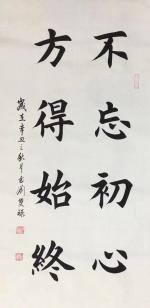 不忘初心
方得始終
歲在辛丑之秋月